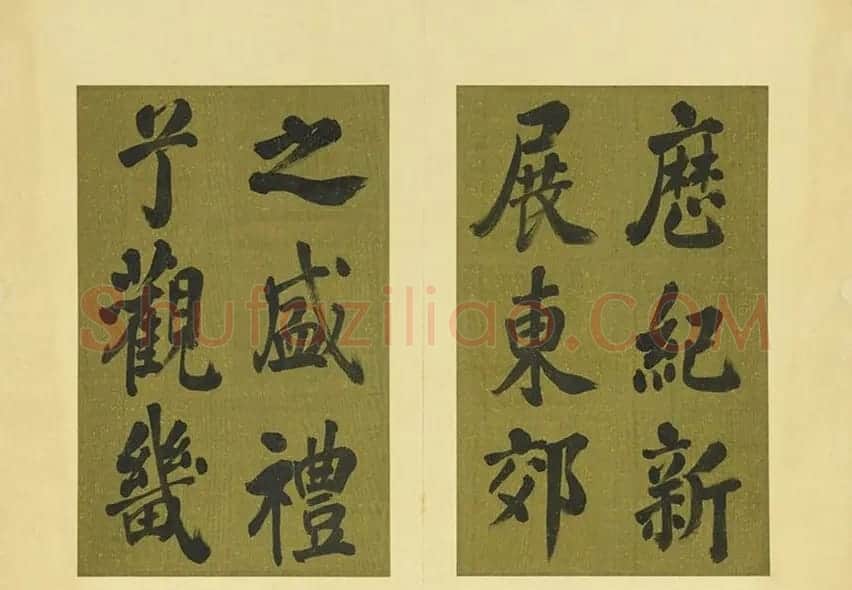 厯紀新
展東郊
之盛禮
觀畿
Shufaziliao.COM